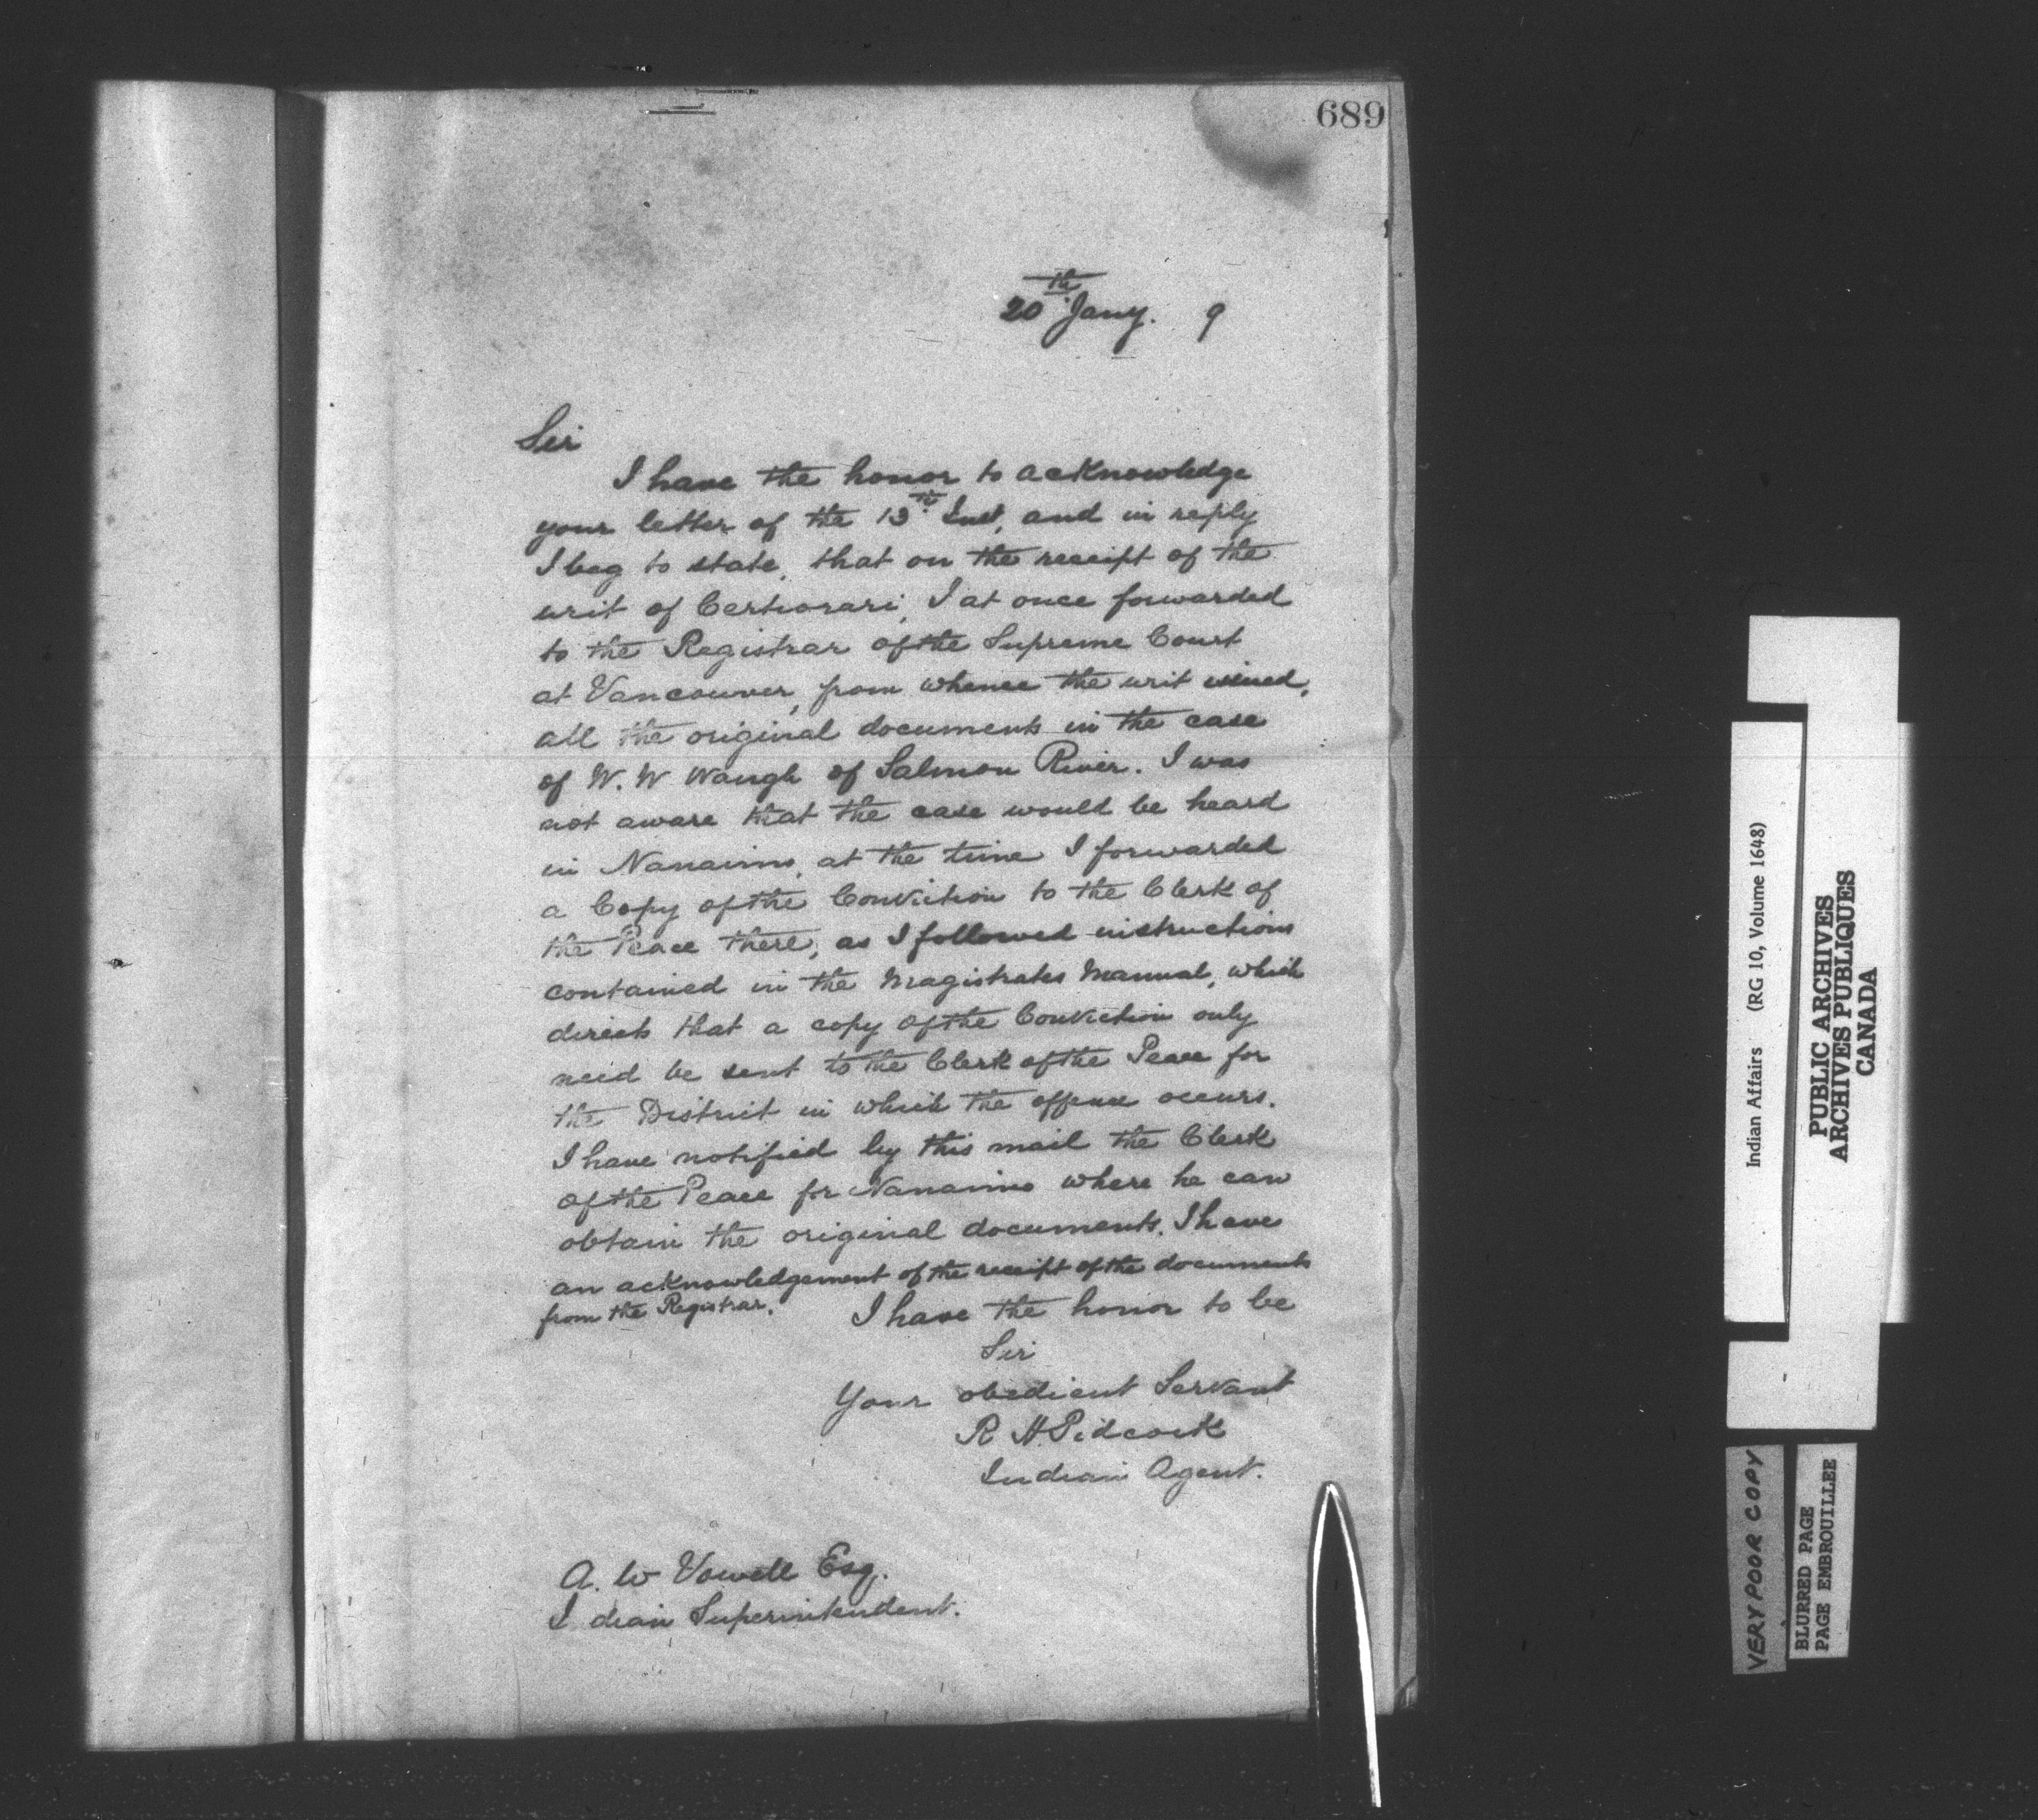 689
20th Jany. 9
Sir
I have the honor to acknowledge
your letter of the 13th Inst, and in reply
I beg to state, that on the receipt of the
writ of Certiorari, I at once forwarded
to the Registrar of the Supreme Court
at Vancouver, from whence the writ issued,
all the original documents in the case
of W. W Waugh of Salmon River. I was
not aware that the case would be heard
in Nanaimo, at the time I forwarded
a Copy of the Conviction to the Clerk of
the Peace there, as I followed instructions
contained in the Magistrates Manual, which
directs that a copy of the Conviction only
need be sent to the Clerk of the Peace for
the District in which the offence occurs.
I have notified by this mail the Clerk
of the Peace for Nanaimo where he can
obtain the original documents. I have
an acknowledgement of the receipt of the documents
from the Registrar.
I have the honor to be
Sir
Your obedient Servant
R H Pidcock
Indian Agent.
A. W Vowell Esq.
I dian Superintendent.
Indian Affairs (RG 10, Volume 1648)
PUBLIC ARCHIVES
ARCHIVES PUBLIQUES
CANADA
VERY POOR COPY
BLURRED PAGE
PAGE EMBROUILLEE